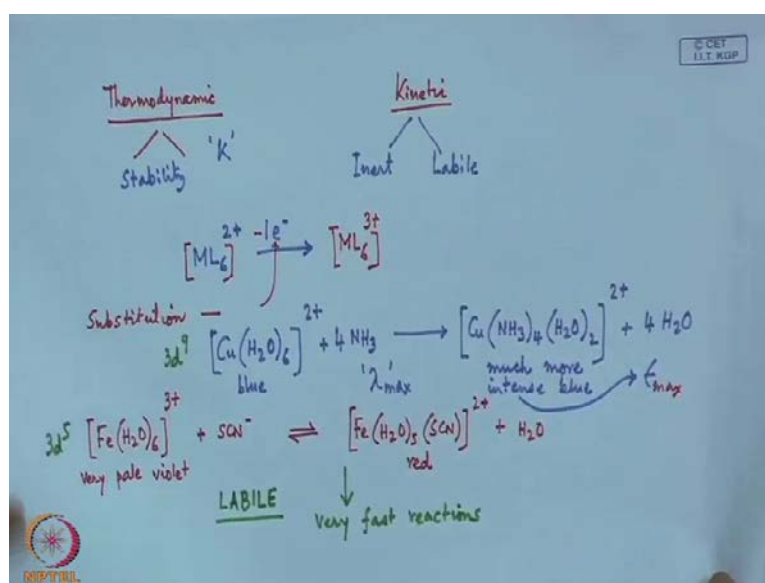 © CET
I.I.T. KGP
Thermodynamic
Kinetic
Stability 'K'
Inert Labile
[ML₆]²⁺ -1e⁻ → [ML₆]³⁺
Substitution —
3d⁹ [Cu(H₂O)₆]²⁺ + 4 NH₃ → [Cu(NH₃)₄(H₂O)₂]²⁺ + 4 H₂O
blue 'λ'max much more
intense blue ϵmax
3d⁵ [Fe(H₂O)₆]³⁺ + SCN⁻ ⇌ [Fe(H₂O)₅(SCN)]²⁺ + H₂O
very pale violet red
LABILE very fast reactions
NPTEL